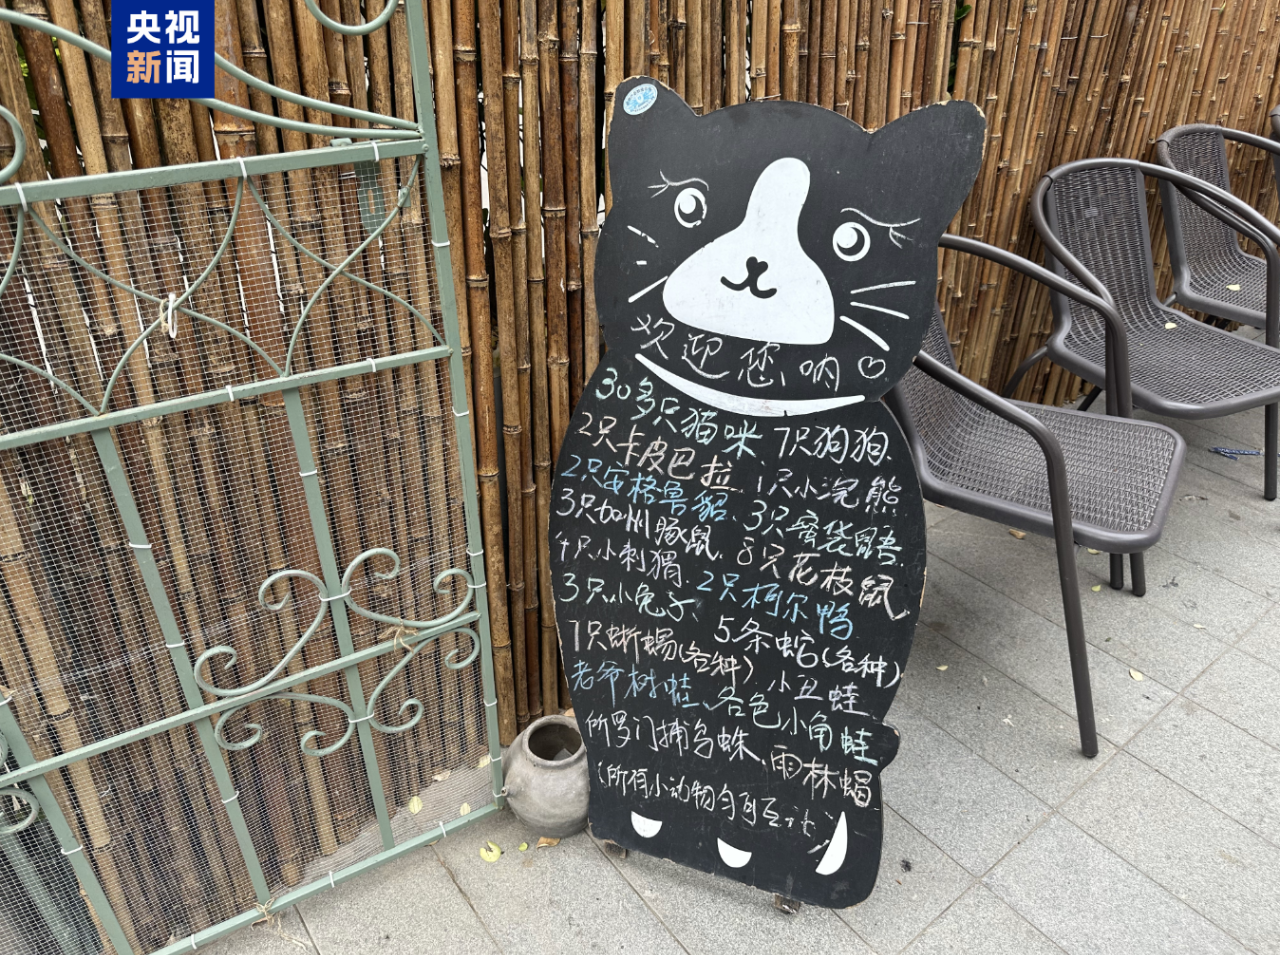 央视
新闻
欢迎您呐
30多只猫咪、7只狗狗、
2只卡皮巴拉、1只小浣熊
2只安格鲁貂、3只蜜袋鼯、
3只加州豚鼠、8只花枝鼠、
4只小刺猬、2只柯尔鸭
3只小兔子、5条蛇(各种)
1只蜥蜴(各种)、小丑蛙
老爷树蛙、各色小角蛙
所罗门捕鸟蛛、雨林蝎
(所有小动物均可互